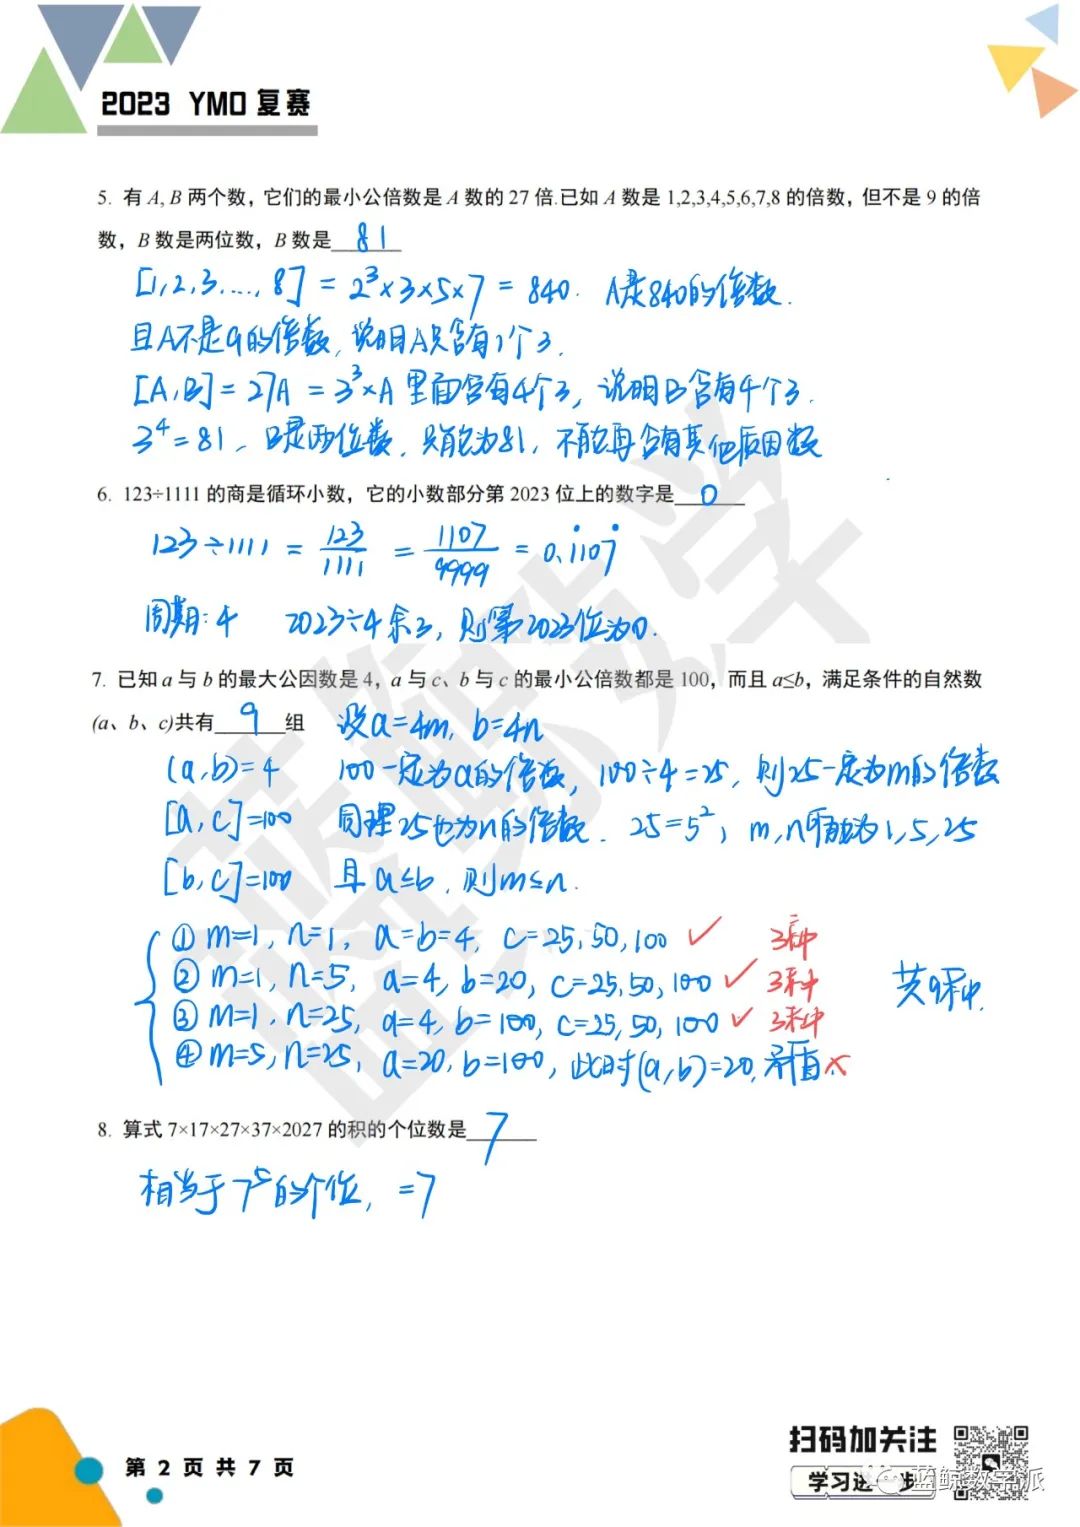 2023 YMO 复赛
5. 有 A, B 两个数，它们的最小公倍数是 A 数的 27 倍.已如 A 数是 1,2,3,4,5,6,7,8 的倍数，但不是 9 的倍
数，B 数是两位数，B 数是 81
[1,2,3,...,8] = 2³×3×5×7 = 840. A是840的倍数.
且A不是9的倍数, 说明A只含有1个3.
[A,B]=27A = 3³×A 里面含有4个3, 说明B含有4个3.
3⁴=81, B是两位数, 只能为81, 不能再含有其他质因数
6. 123÷1111 的商是循环小数，它的小数部分第 2023 位上的数字是 0
123÷1111 = 123/1111 = 1107/9999 = 0.1̇107̇
周期: 4 2023÷4余3, 则第2023位为0.
7. 已知 a 与 b 的最大公因数是 4，a 与 c、b 与 c 的最小公倍数都是 100，而且 a≤b，满足条件的自然数
(a、b、c)共有 9 组 设a=4m, b=4n
(a,b)=4 100一定为a的倍数, 100÷4=25, 则25一定为m的倍数
[a,c]=100 同理25也为n的倍数. 25=5², m,n可能为1,5,25
[b,c]=100 且a≤b, 则m≤n.
① m=1, n=1, a=b=4, c=25,50,100 ✓ 3种
② m=1, n=5, a=4, b=20, c=25,50,100 ✓ 3种 共9种.
③ m=1, n=25, a=4, b=100, c=25,50,100 ✓ 3种
④ m=5, n=25, a=20, b=100, 此时(a,b)=20, 矛盾 ×
8. 算式 7×17×27×37×2027 的积的个位数是 7
相当于7⁵的个位, =7
扫码加关注
学习进一步
第 2 页 共 7 页
蓝鲸数学派
蓝鲸数学